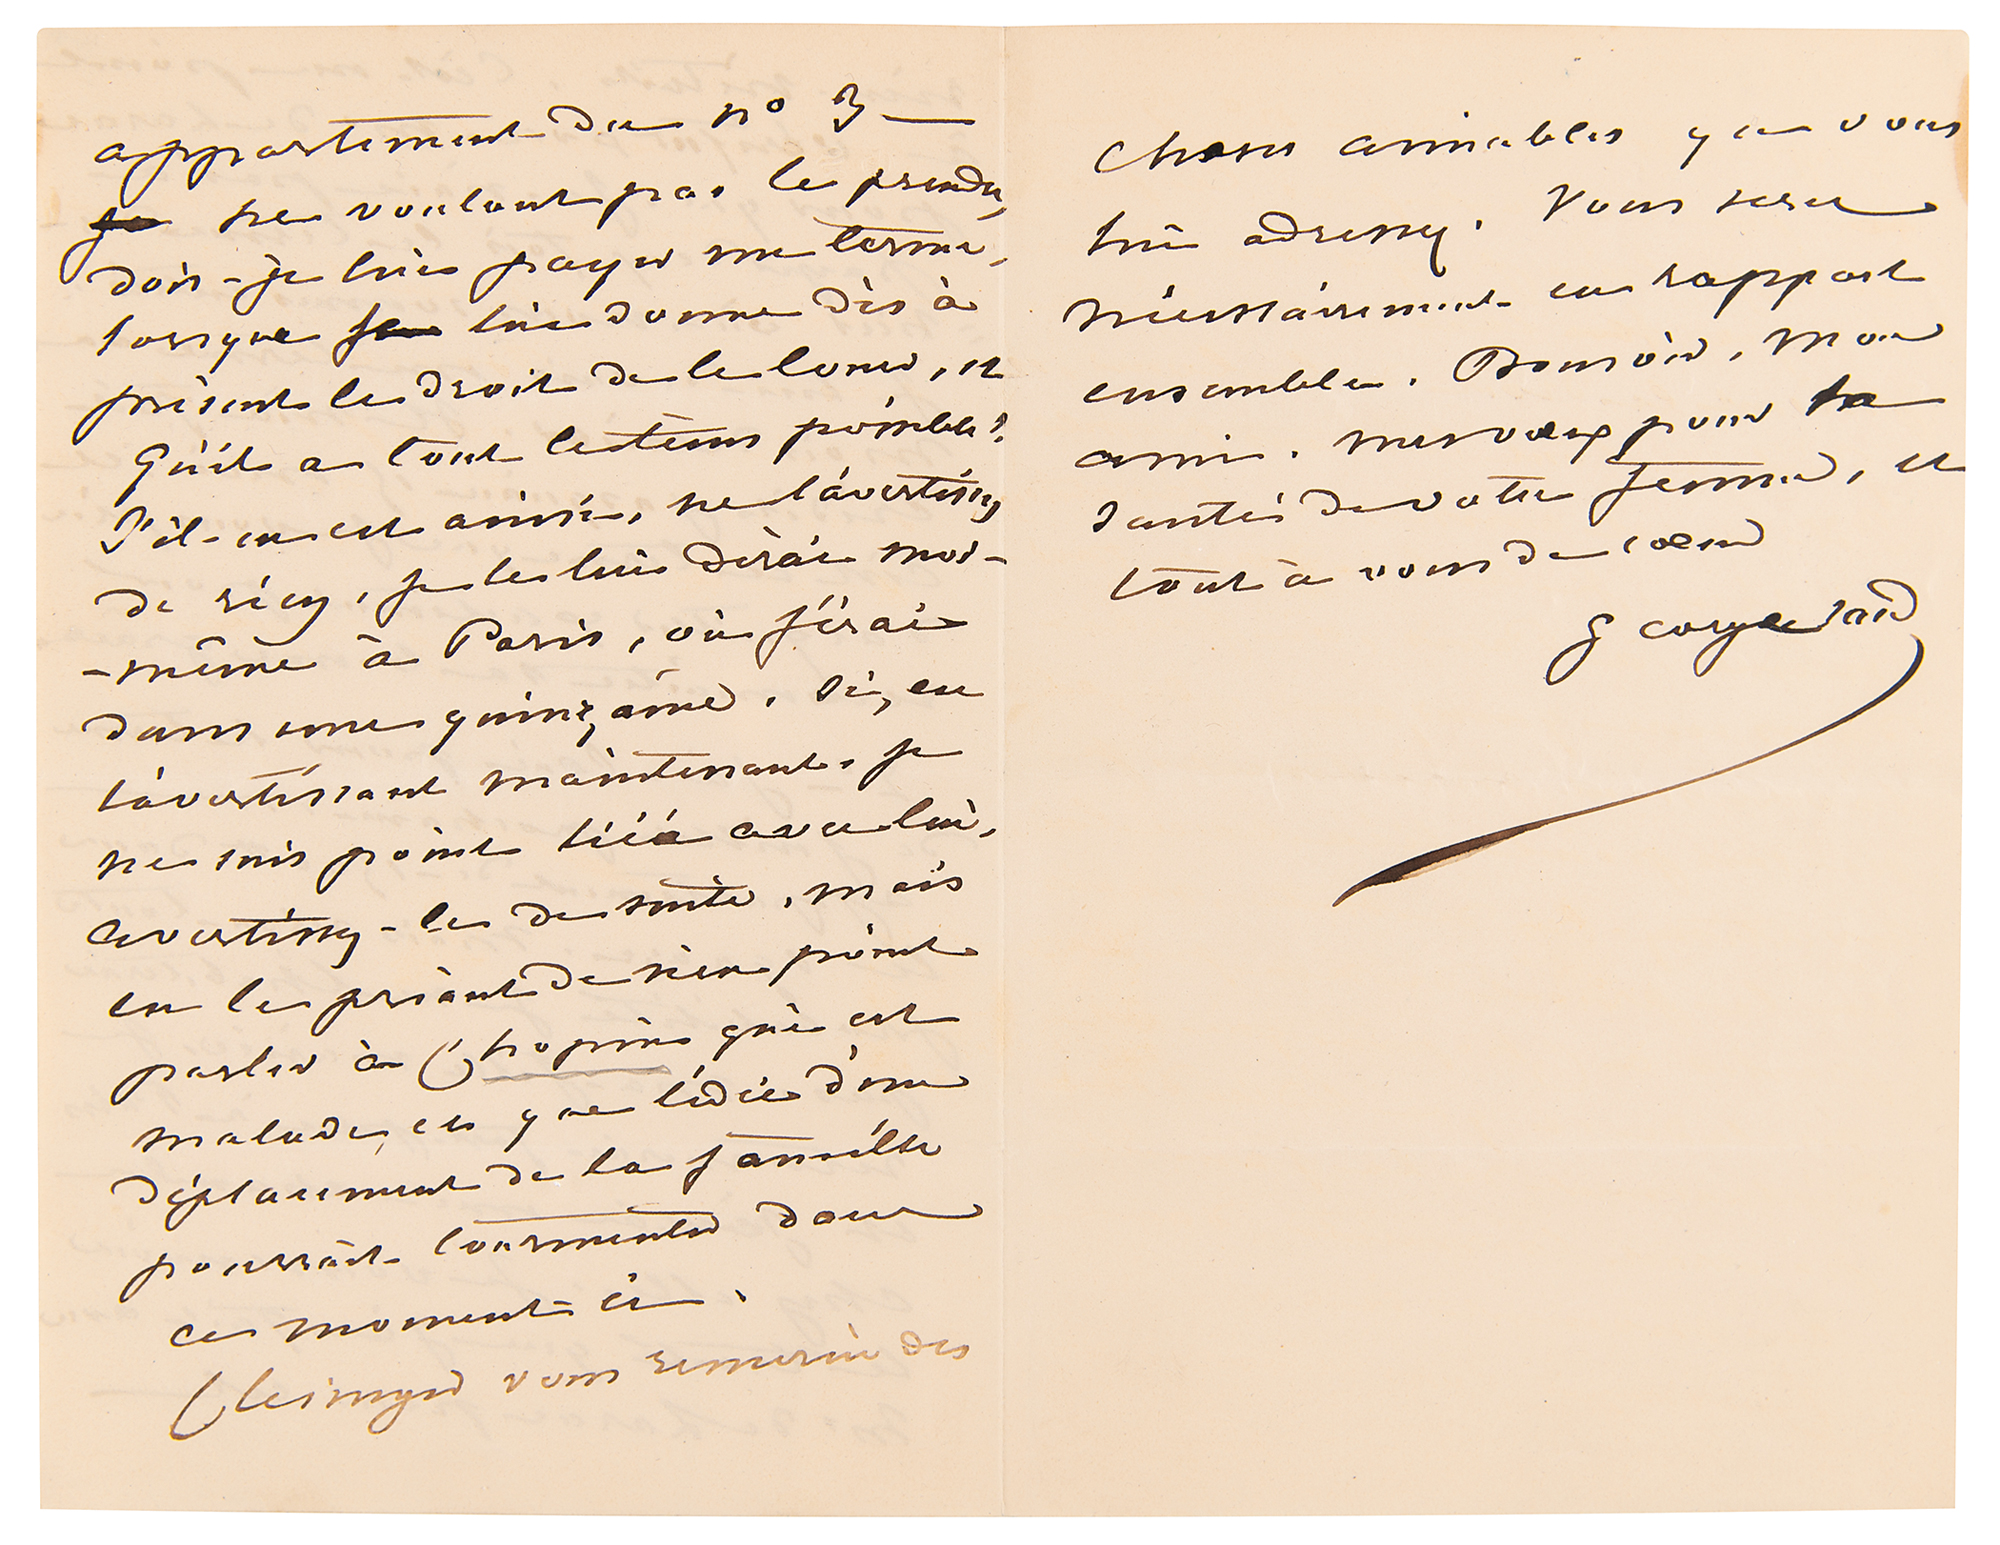 appartement du n° 3 —
ne voulant pas le prendre,
dois-je lui payer un terme,
lorsque lui donne dès à
présent le droit de le louer, et
qu'il a tout le tems possible?
S'il en est ainsi, ne l'avertissez
de rien, je le lui dirai moi-
-même à Paris, où j'irai
dans une quinzaine. Si, en
l'avertissant maintenant, je
ne suis point liée avec lui,
avertissez-le de suite, mais
en le priant de n'en point
parler à Chopin qui est
malade, et que l'idée d'un
déplacement de la famille
pourrait tourmenter dans
ce moment-ci.
Clésinger vous remercie des
choses aimables que vous
lui adressez. Vous serez
nécessairement en rapport
ensemble. Bonsoir, mon
ami. mes vœux pour la
santé de votre femme, et
tout à vous de cœur
George Sand